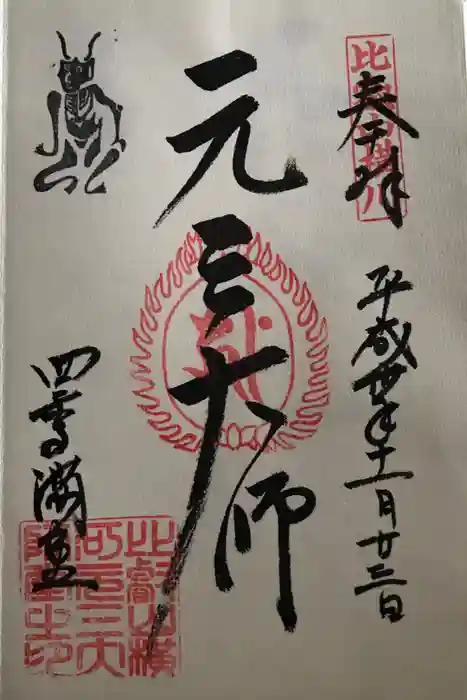 奉拝
比叡山横川
平成丗年十一月廿三日
元三大師
四季講堂
比叡山横
川元三大
師堂之印